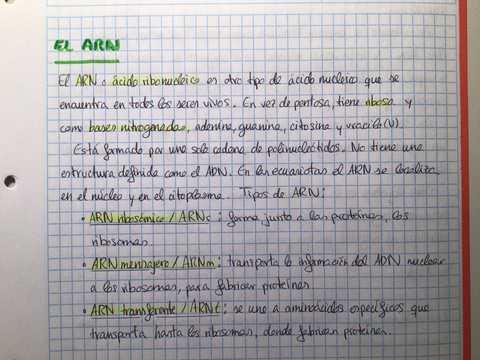 EL ARN
El ARN o ácido ribonucleico es otro tipo de ácido nucleico que se
encuentra en todos los seres vivos. En vez de pentosa, tiene ribosa y
como bases nitrogenadas, adenina, guanina, citosina y uracilo (U).
Está formado por una sola cadena de polinucleótidos. No tiene una
estructura definida como el ADN. En las eucariotas el ARN se localiza
en el núcleo y en el citoplasma. Tipos de ARN:
• ARN ribosómico / ARNr : forma, junto a las proteínas, los
ribosomas.
• ARN mensajero / ARNm : transporta la información del ADN nuclear
a los ribosomas, para fabricar proteínas
• ARN transferente / ARNt : se une a aminoácidos específicos que
transporta hasta los ribosomas, donde fabrican proteínas.